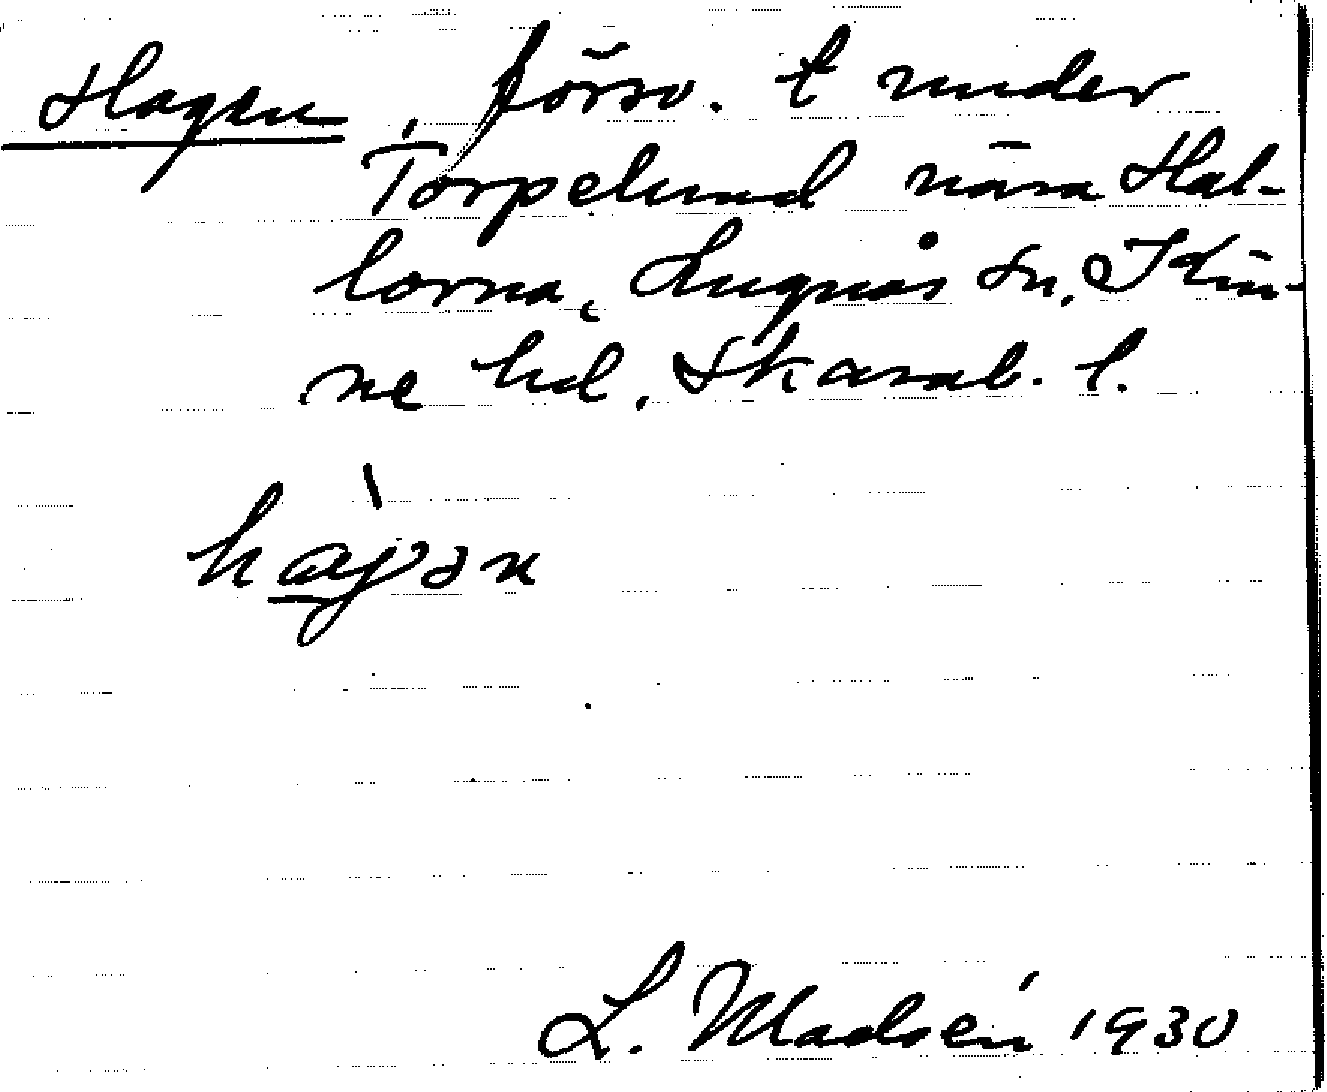 Hagen, försv. t under
Torpelund nära Hal-
lorna, Lugnås sn, Kin-
ne hd, Skarab. l.
hàɡən
L. Madsén 1930